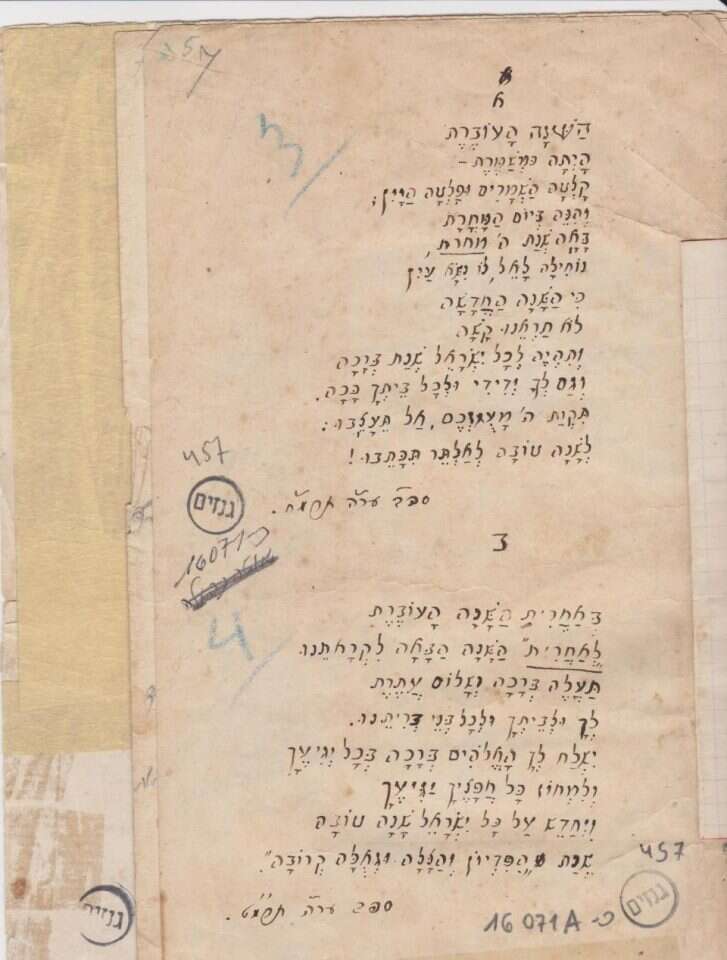 457
א
3
השנה העוברת
היתה כמשמרת –
קלטה השמרים ופלטה היין;
והנה ביום המחרת
באה שנת ה' מחרת,
נוחילה לאל, לו נשא עין
כי השנה החדשה
לא תראנו קשה
ותהיה לכל ישראל שנת ברכה
וגם לך ידידי ולכל ביתך ככה.
תקות ה' מעוזכם, אל תעצבו:
לשנה טובה לאלתר תכתבו!
457
גנזים
ער"ה
16071 כ-
ב
4
באחרית השנה העוברת
"לאחרית" השנה הבאה לקראתנו
תעלה ברכה ושלום עתרת
לך ולביתך ולכל בני בריתנו.
ישלח לך האלהים ברכה בכל יגיעך
ולמחוז כל חפציך יגיעך
ויחדש על כל ישראל שנה טובה
שנת "הפדיון והצלה וגאלה קרובה".
457
ער"ה
גנזים
כ- 16071A
גנזים